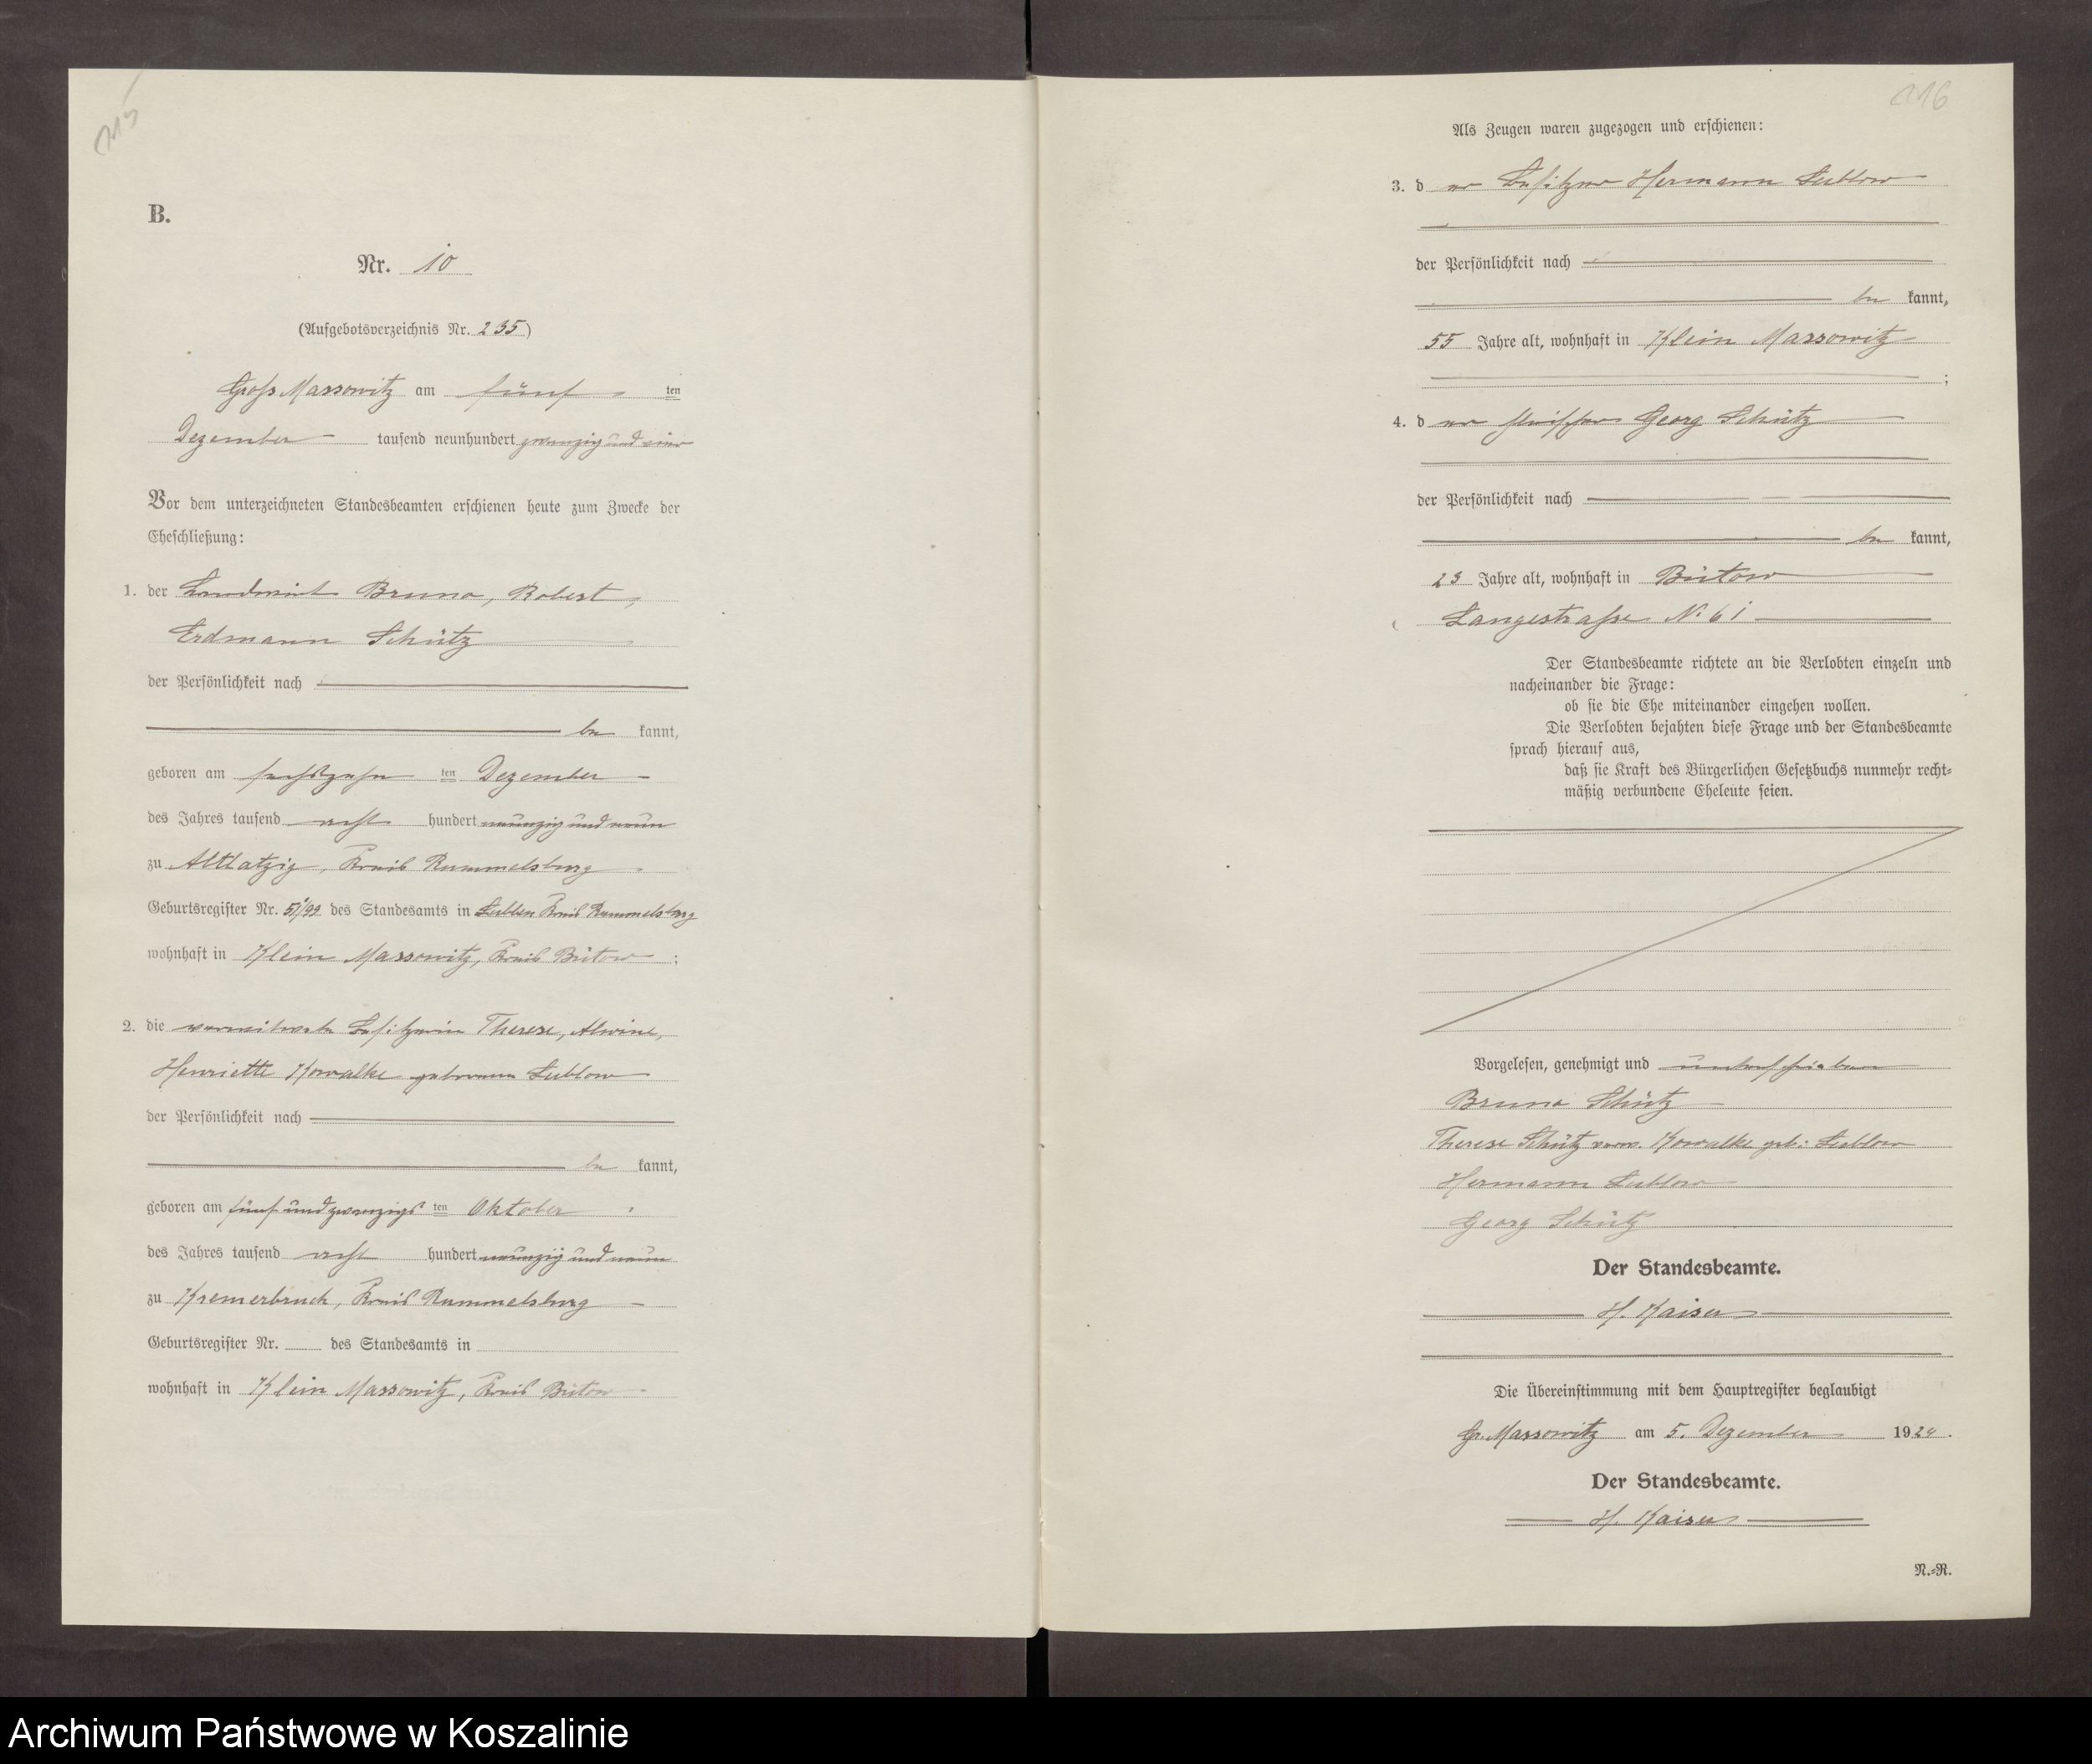 115
B.
Nr. 10
(Aufgebotsverzeichnis Nr. 235)
Groß Massowitz am fünf ten
Dezember tausend neunhundert zwanzig und vier
Vor dem unterzeichneten Standesbeamten erschienen heute zum Zwecke der
Eheschließung:
1. der Landwirt Bruno, Robert,
Erdmann Schütz
der Persönlichkeit nach
be kannt,
geboren am sechszehn ten Dezember
des Jahres tausend acht hundert neunzig und neun
zu Altlatzig, Kreis Rummelsburg
Geburtsregister Nr. 51/99 des Standesamts in Kreis Rummelsburg
wohnhaft in Klein Massowitz, Kreis Bütow ;
2. die verwitwete Besitzerin Therese, Alwine,
Henriette Kowalke geborene Lublow
der Persönlichkeit nach
be kannt,
geboren am fünf und zwanzigs ten Oktober
des Jahres tausend acht hundert neunzig und neun
zu Kremerbruch, Kreis Rummelsburg
Geburtsregister Nr. des Standesamts in
wohnhaft in Klein Massowitz, Kreis Bütow
116
Als Zeugen waren zugezogen und erschienen:
3. d er Besitzer Hermann Lublow
der Persönlichkeit nach
be kannt,
55 Jahre alt, wohnhaft in Klein Massowitz
;
4. d er Georg Schütz
der Persönlichkeit nach
be kannt,
23 Jahre alt, wohnhaft in Bütow
Langestraße No 61
Der Standesbeamte richtete an die Verlobten einzeln und
nacheinander die Frage:
ob sie die Ehe miteinander eingehen wollen.
Die Verlobten bejahten diese Frage und der Standesbeamte
sprach hierauf aus,
daß sie Kraft des Bürgerlichen Gesetzbuchs nunmehr recht-
mäßig verbundene Eheleute seien.
Vorgelesen, genehmigt und unterschrieben
Bruno Schütz
Therese Schütz verw. Kowalke geb: Lublow
Hermann Lublow
Georg Schütz
Der Standesbeamte.
H. Kaiser
Die Übereinstimmung mit dem Hauptregister beglaubigt
Gr. Massowitz am 5. Dezember 1924.
Der Standesbeamte.
H. Kaiser
N.-R.
Archiwum Państwowe w Koszalinie